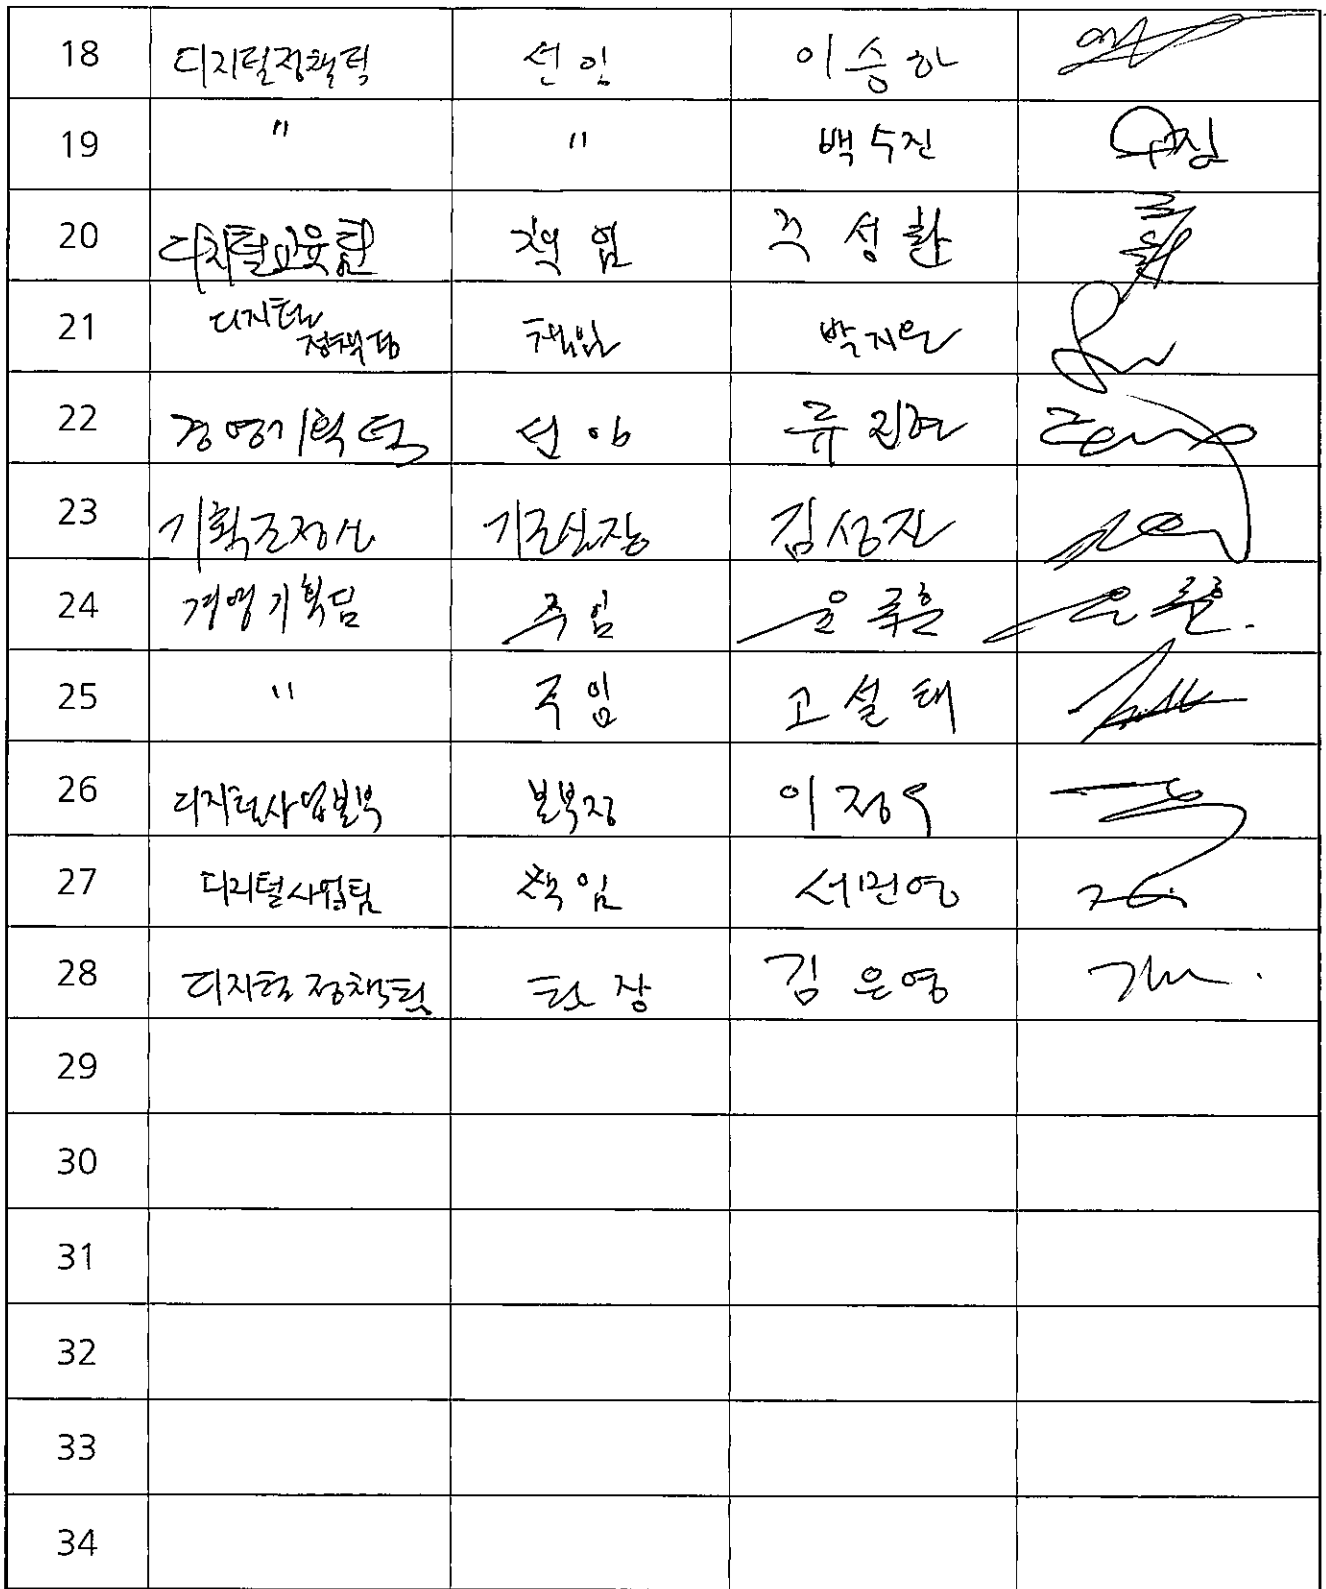 18 디지털정책팀 선임 이승하
19 " " 백수진 수진
20 디지털교육팀 책임 주성환
21 디지털 정책팀 책임 박지은
22 경영기획팀 선임 류진아
23 기획조정실 기조실장 김성진
24 경영기획팀 주임 윤루흔
25 " 주임 고설태
26 디지털사업본부 본부장 이정우
27 디지털사업팀 책임 서민영
28 디지털정책팀 팀장 김은영
29
30
31
32
33
34